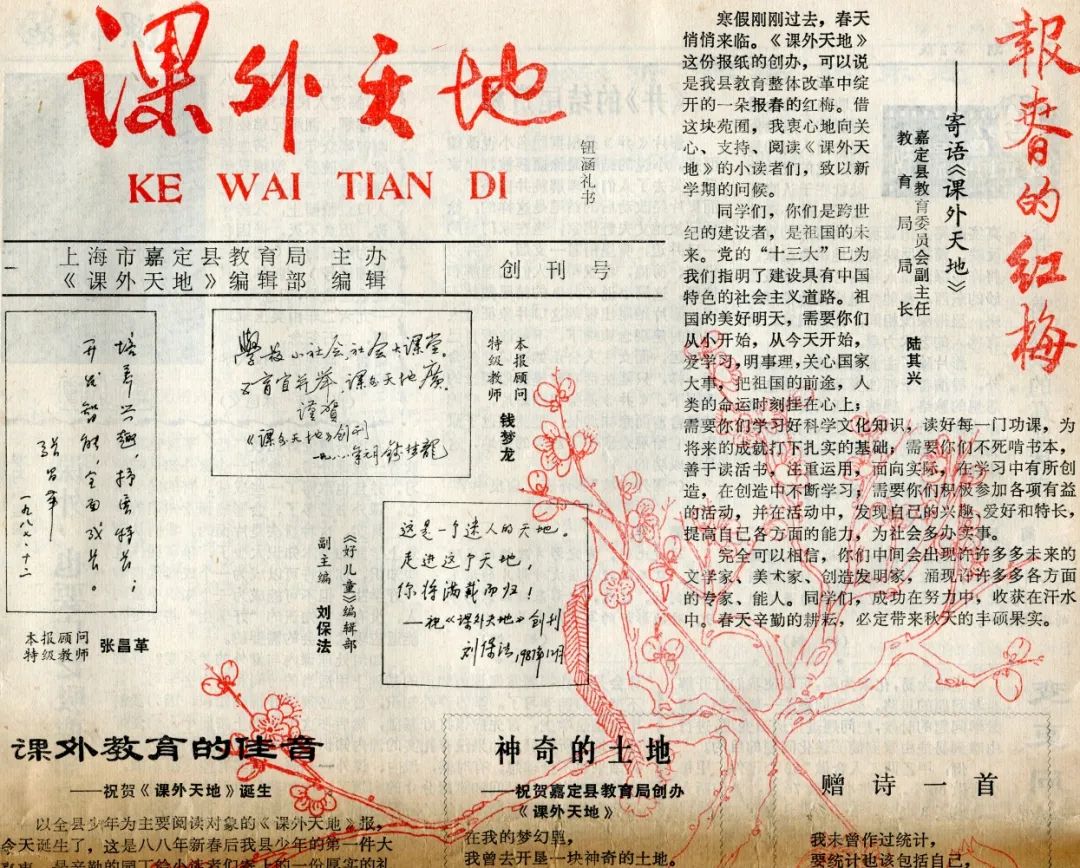 课外天地
KE WAI TIAN DI
钮涵礼书
上海市嘉定县教育局 主办
《课外天地》编辑部 编辑
创刊号
报春的红梅
——寄语《课外天地》
嘉定县教育委员会副主任
教育局局长
陆其兴
寒假刚刚过去,春天
悄悄来临。《课外天地》
这份报纸的创办,可以说
是我县教育整体改革中绽
开的一朵报春的红梅。借
这块苑囿,我衷心地向关
心、支持、阅读《课外天
地》的小读者们,致以新
学期的问候。
同学们,你们是跨世
纪的建设者,是祖国的未
来。党的“十三大”已为
我们指明了建设具有中国
特色的社会主义道路。祖
国的美好明天,需要你们
从小开始,从今天开始,
爱学习,明事理,关心国家
大事,把祖国的前途,人
类的命运时刻挂在心上;
需要你们学习好科学文化知识,读好每一门功课,为
将来的成就打下扎实的基础;需要你们不死啃书本,
善于读活书,注重运用,面向实际,在学习中有所创
造,在创造中不断学习;需要你们积极参加各项有益
的活动,并在活动中,发现自己的兴趣、爱好和特长,
提高自己各方面的能力,为社会多办实事。
完全可以相信,你们中间会出现许许多多未来的
文学家、美术家、创造发明家,涌现许许多多各方面
的专家、能人。同学们,成功在努力中,收获在汗水
中。春天辛勤的耕耘,必定带来秋天的丰硕果实。
培养兴趣,抒展特长;
开发智能,全面成长。
张昌革
一九八七·十二
本报顾问
特级教师
张昌革
學校小社会,社会大课堂。
五育宜并举,课外天地廣。
谨賀
《课外天地》创刊
一九八八年元月 钱梦龍
本报顾问
特级教师
钱梦龙
这是一个迷人的天地。
走进这个天地,
你将满载而归!
—祝《课外天地》创刊
刘保法 1987年12月
《好儿童》编辑部
副主编
刘保法
课外教育的佳音
——祝贺《课外天地》诞生
以全县少年为主要阅读对象的《课外天地》报,
今天诞生了,这是八八年新春后我县少年的第一件大
神奇的土地
——祝贺嘉定县教育局创办
《课外天地》
在我的梦幻里,
我曾去开垦一块神奇的土地。
赠诗一首
我未曾作过统计,
要统计也该包括自己,